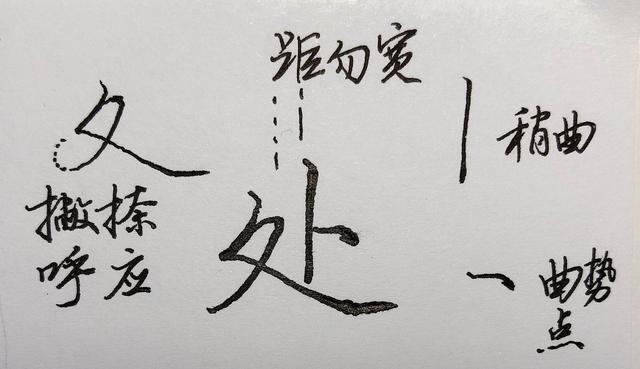 距勿宽
夂
稍曲
撇捺
呼应
处
曲势
点